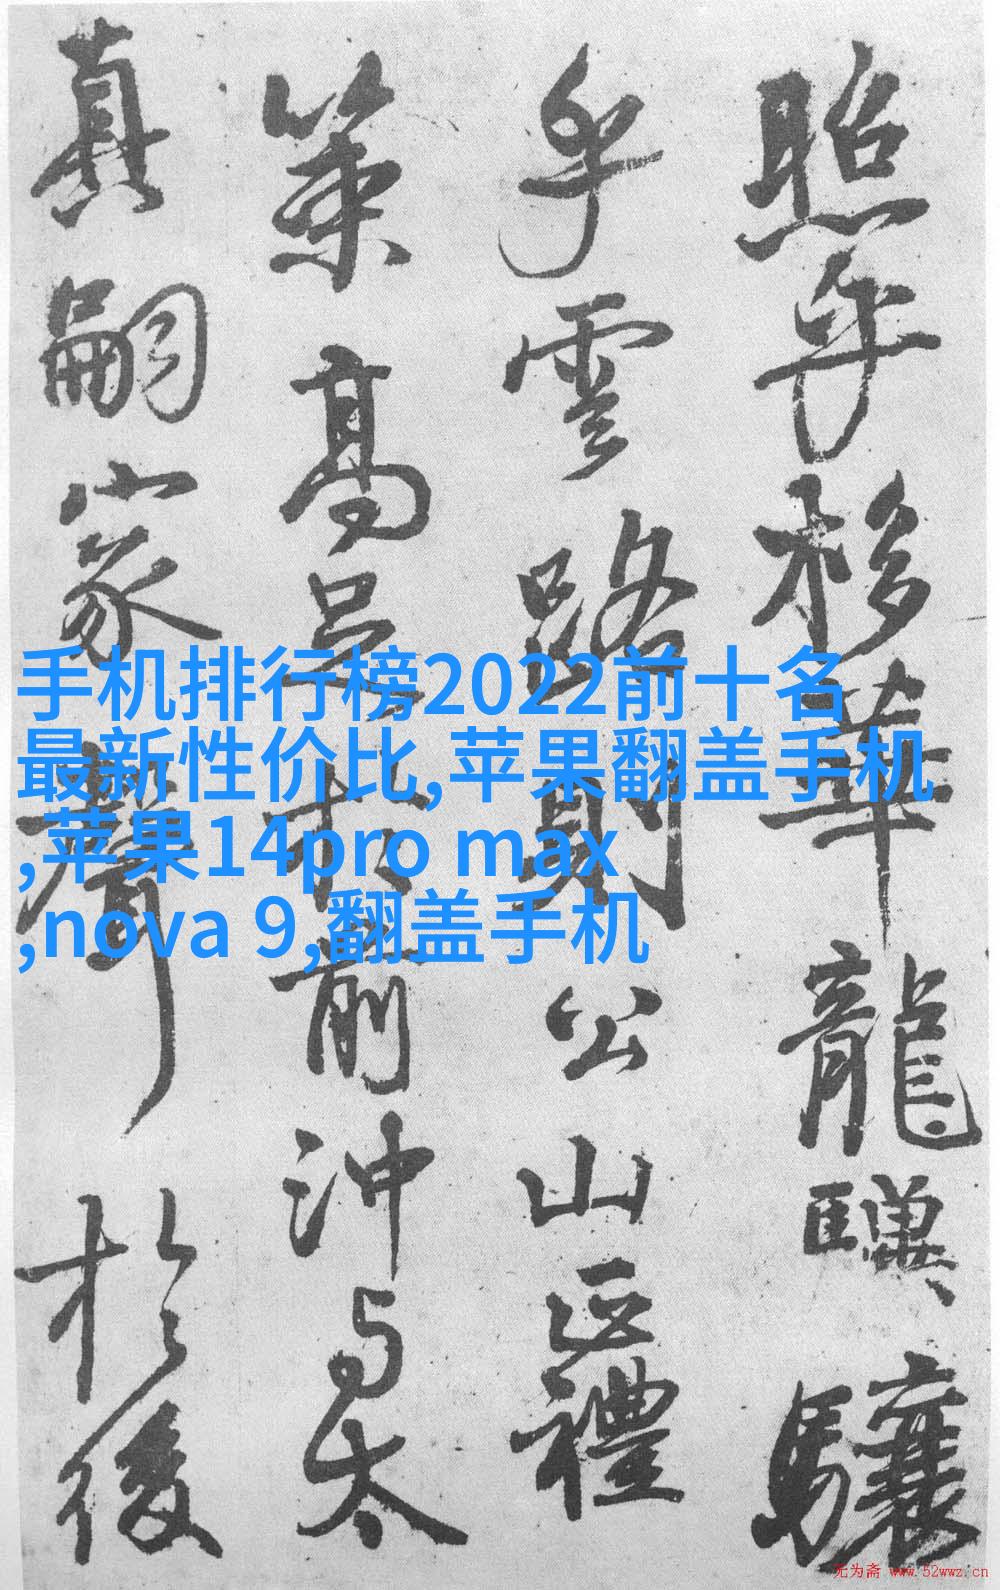 手机排行榜2022前十名
最新性价比,苹果翻盖手机
,苹果14pro max
,nova 9,翻盖手机
照乎栘華龍驥驤
乎雲路則公山正禮
策高足於前沖与太
真嗣家聲於後
无为斋 www.52wwz.cn